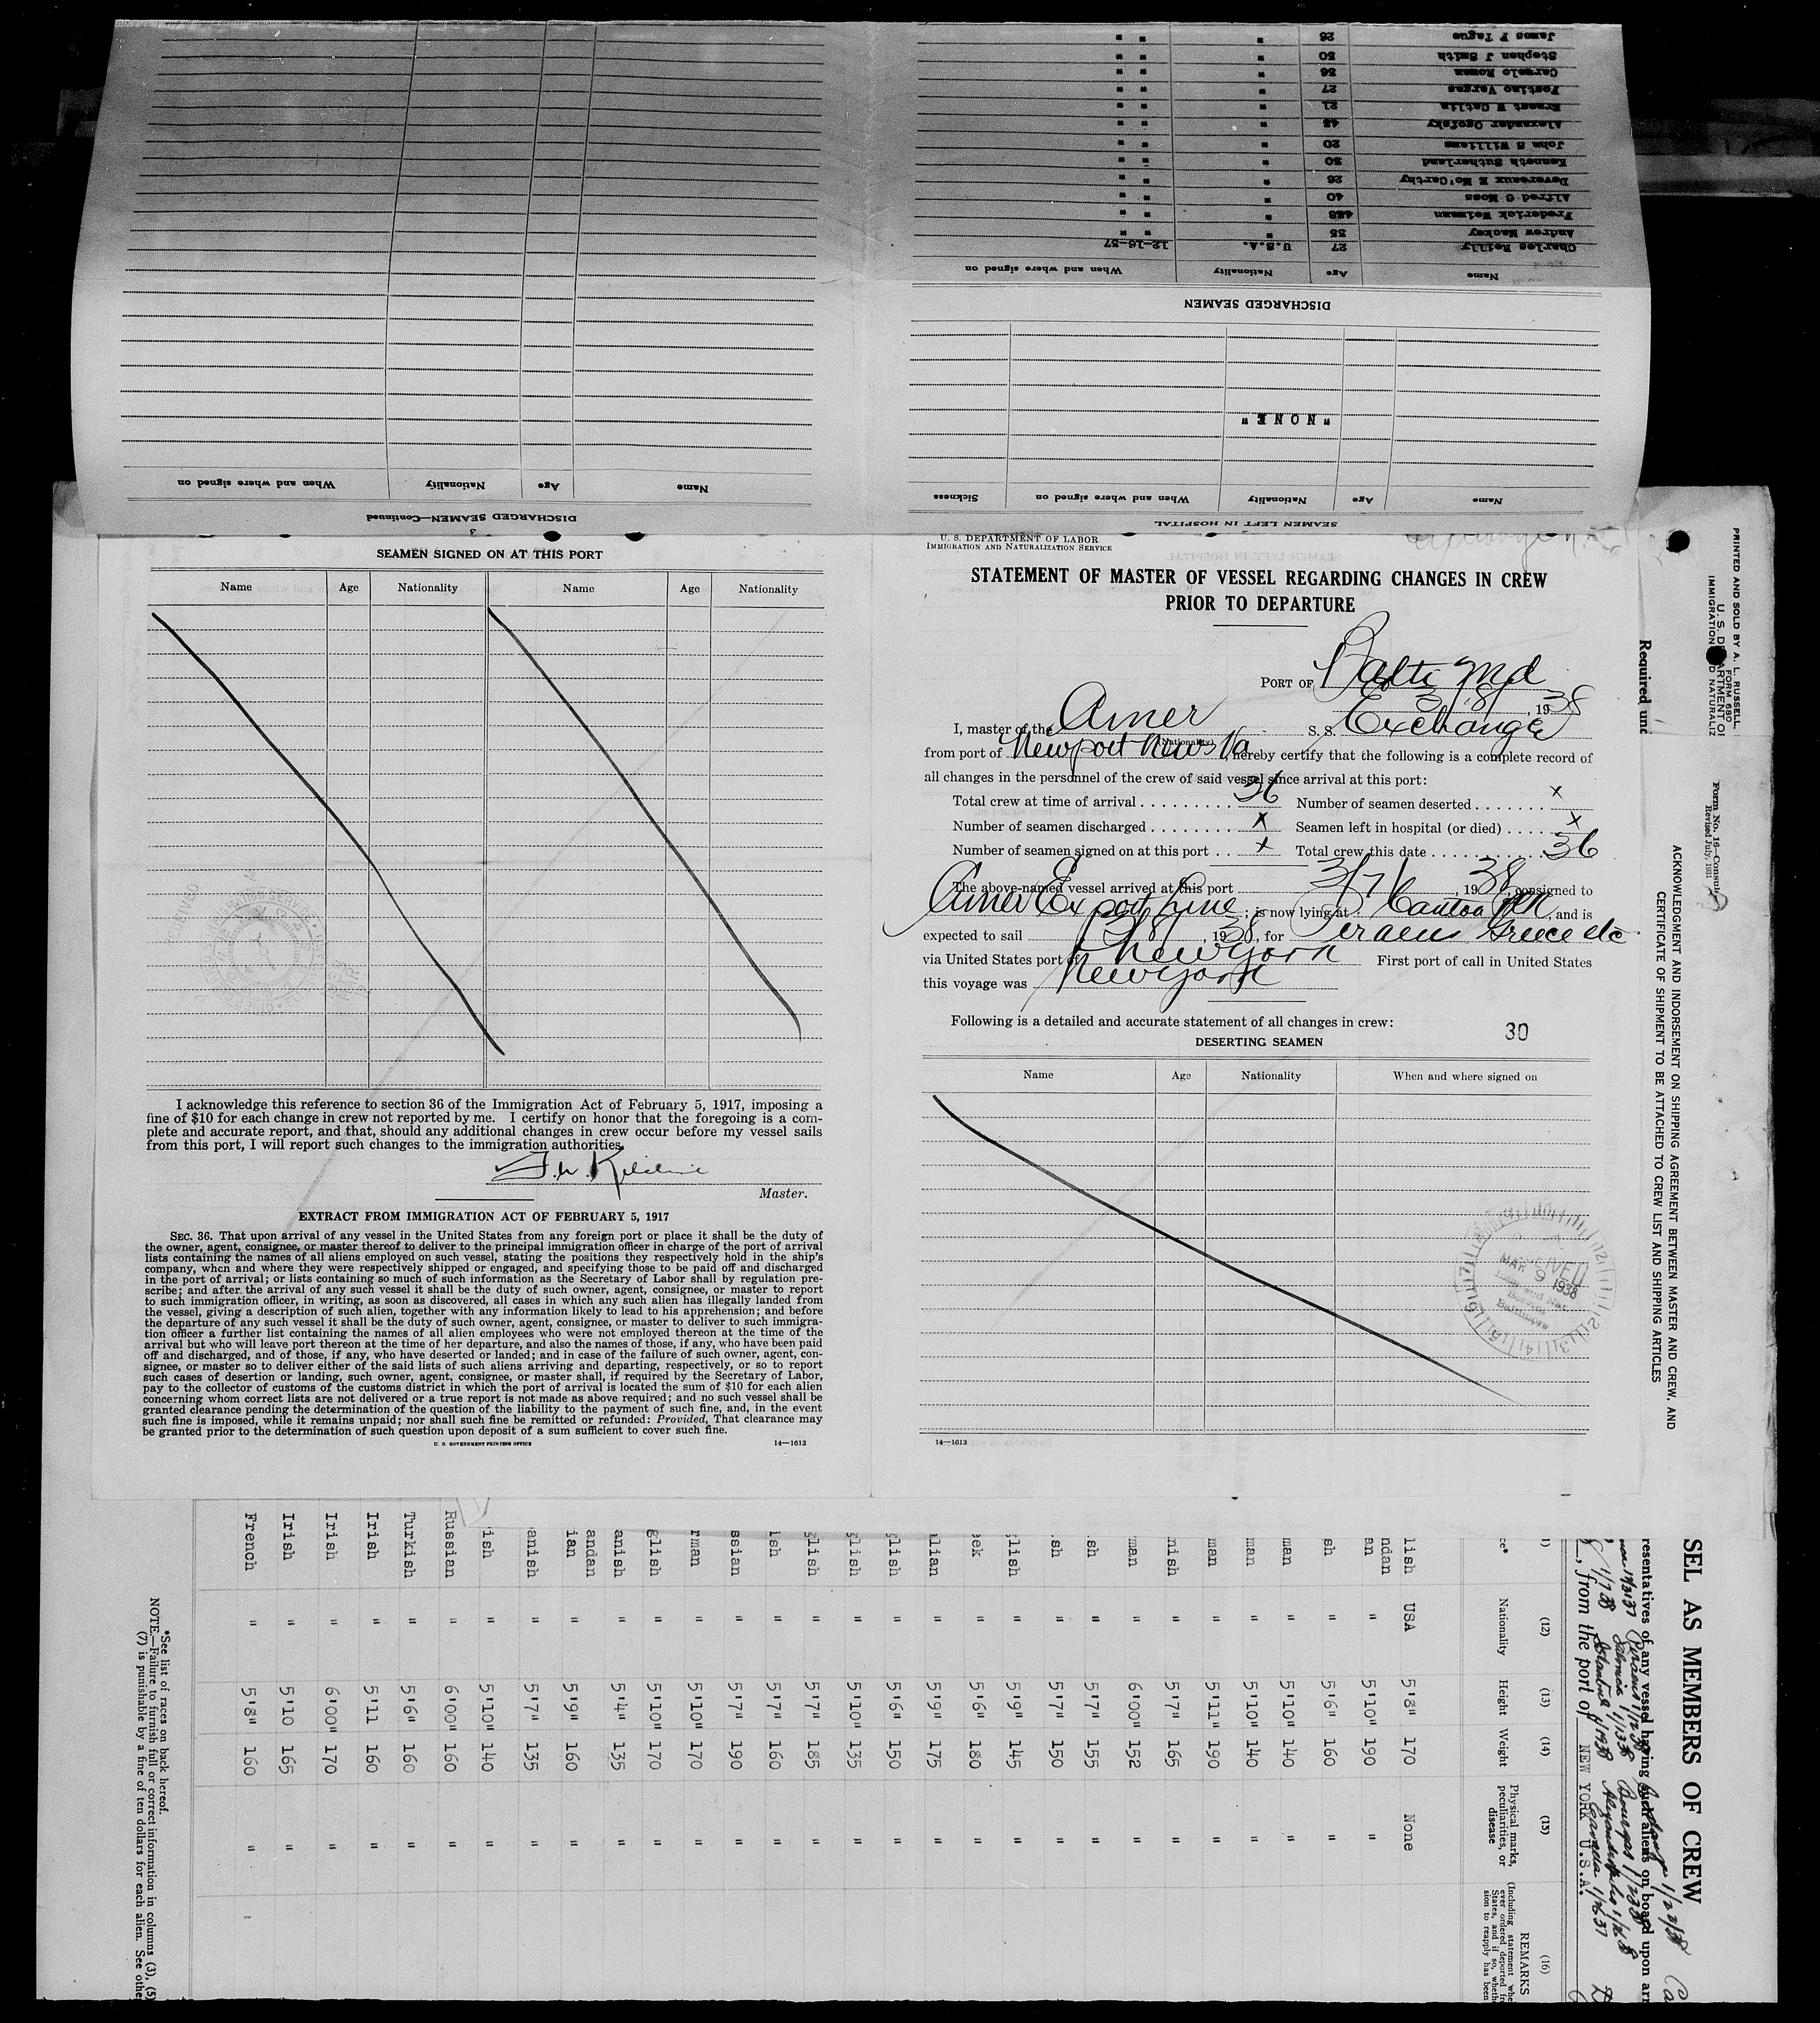 DISCHARGED SEAMEN—Continued
Name Age Nationality When and where signed on
3
SEAMEN LEFT IN HOSPITAL
Name Age Nationality When and where signed on Sickness
"NONE"
DISCHARGED SEAMEN
Name Age Nationality When and where signed on
Charles Reilly 27 U.S.A. 12-16-37
Andrew Mackey 35 " " "
Frederick Weimann " " "
Alfred G Moss 40 " " "
Devereaux E Mc'Carthy 26 " " "
Kenneth Sutherland 30 " " "
John S Williams 20 " " "
Alexander Ogofsky 43 " " "
Ernest W Catlin 21 " " "
Postino Vargas 27 " " "
Carmelo Roman 36 " " "
Stephen J Smith 50 " " "
James F Tague 26 " " "
SEAMEN SIGNED ON AT THIS PORT
Name Age Nationality Name Age Nationality
I acknowledge this reference to section 36 of the Immigration Act of February 5, 1917, imposing a
fine of $10 for each change in crew not reported by me. I certify on honor that the foregoing is a com-
plete and accurate report, and that, should any additional changes in crew occur before my vessel sails
from this port, I will report such changes to the immigration authorities.
Master.
EXTRACT FROM IMMIGRATION ACT OF FEBRUARY 5, 1917
SEC. 36. That upon arrival of any vessel in the United States from any foreign port or place it shall be the duty of
the owner, agent, consignee, or master thereof to deliver to the principal immigration officer in charge of the port of arrival
lists containing the names of all aliens employed on such vessel, stating the positions they respectively hold in the ship's
company, when and where they were respectively shipped or engaged, and specifying those to be paid off and discharged
in the port of arrival; or lists containing so much of such information as the Secretary of Labor shall by regulation pre-
scribe; and after the arrival of any such vessel it shall be the duty of such owner, agent, consignee, or master to report
to such immigration officer, in writing, as soon as discovered, all cases in which any such alien has illegally landed from
the vessel, giving a description of such alien, together with any information likely to lead to his apprehension; and before
the departure of any such vessel it shall be the duty of such owner, agent, consignee, or master to deliver to such immigra-
tion officer a further list containing the names of all alien employees who were not employed thereon at the time of the
arrival but who will leave port thereon at the time of her departure, and also the names of those, if any, who have been paid
off and discharged, and of those, if any, who have deserted or landed; and in case of the failure of such owner, agent, con-
signee, or master so to deliver either of the said lists of such aliens arriving and departing, respectively, or so to report
such cases of desertion or landing, such owner, agent, consignee, or master shall, if required by the Secretary of Labor,
pay to the collector of customs of the customs district in which the port of arrival is located the sum of $10 for each alien
concerning whom correct lists are not delivered or a true report is not made as above required; and no such vessel shall be
granted clearance pending the determination of the question of the liability to the payment of such fine, and, in the event
such fine is imposed, while it remains unpaid; nor shall such fine be remitted or refunded: Provided, That clearance may
be granted prior to the determination of such question upon deposit of a sum sufficient to cover such fine.
U. S. GOVERNMENT PRINTING OFFICE 14—1613
U. S. DEPARTMENT OF LABOR
IMMIGRATION AND NATURALIZATION SERVICE
STATEMENT OF MASTER OF VESSEL REGARDING CHANGES IN CREW
PRIOR TO DEPARTURE
PORT OF Balto Md
3/8, 1938
I, master of the Amer S. S. Exchange
(Nationality)
from port of Newport News Va, hereby certify that the following is a complete record of
all changes in the personnel of the crew of said vessel since arrival at this port:
Total crew at time of arrival 36 Number of seamen deserted x
Number of seamen discharged x Seamen left in hospital (or died) x
Number of seamen signed on at this port x Total crew this date 36
The above-named vessel arrived at this port 3/7/, 1938, consigned to
Amer Export Line; is now lying at Canton and is
expected to sail 3/8, 1938, for Piraeus Greece etc
via United States port of New York First port of call in United States
this voyage was New York
Following is a detailed and accurate statement of all changes in crew:
30
DESERTING SEAMEN
Name Age Nationality When and where signed on
RECEIVED
MAR 9 1938
Baltimore
14—1613
PRINTED AND SOLD BY A. L. RUSSELL
FORM 680
U. S. DEPARTMENT OF
IMMIGRATION AND NATURALIZ
Form No. 16—Consul
Revised July, 1931
Required und
ACKNOWLEDGMENT AND INDORSEMENT ON SHIPPING AGREEMENT BETWEEN MASTER AND CREW, AND
CERTIFICATE OF SHIPMENT TO BE ATTACHED TO CREW LIST AND SHIPPING ARTICLES
SEL AS MEMBERS OF CREW
resentatives of any vessel having such aliens on board upon arr
, from the port of NEW YORK U.S.A.
(12) (13) (14) (15) (16)
Nationality Height Weight Physical marks, peculiarities, or disease REMARKS
lish USA 5'8" 170 None
ndan
an " 5'10" 190 "
sh " 5'6" 160 "
man " 5'10" 140 "
man " 5'10" 140 "
man " 5'11" 190 "
nish " 5'7" 165 "
man " 6'00" 152 "
sh " 5'7" 155 "
sh " 5'7" 150 "
lish " 5'9" 145 "
eek " 5'6" 180 "
lian " 5'9" 175 "
lish " 5'6" 150 "
glish " 5'10" 135 "
glish " 5'7" 185 "
ish " 5'7" 160 "
ssian " 5'7" 190 "
rman " 5'10" 170 "
glish " 5'10" 170 "
anish " 5'4" 135 "
andan
ian " 5'9" 160 "
anish " 5'7" 135 "
ish " 5'10" 140 "
Russian " 6'00" 160 "
Turkish " 5'6" 160 "
Irish " 5'11 160 "
Irish " 6'00" 170 "
Irish " 5'10 165 "
French " 5'8" 160 "
*See list of races on back hereof.
NOTE.—Failure to furnish full or correct information in columns (3), (5)
(7) is punishable by a fine of ten dollars for each alien. See othe